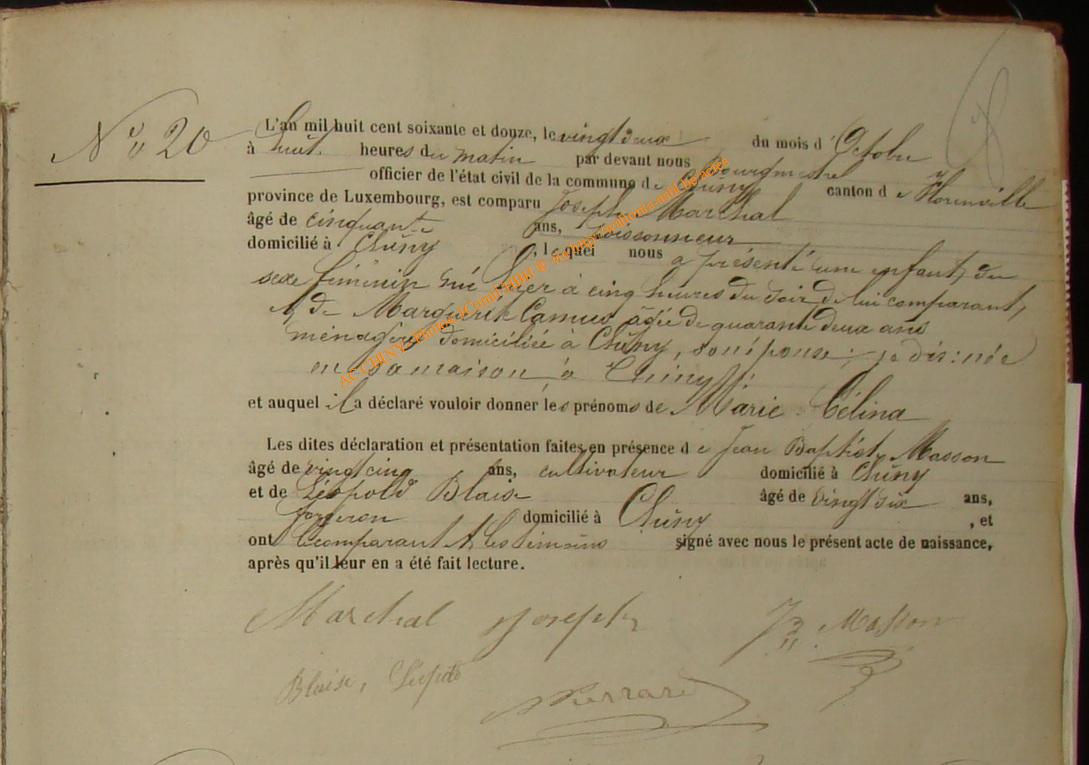 N° 20
L'an mil huit cent soixante et douze, le vingt deux du mois d'Octobre
à huit heures du matin par devant nous Bourgmestre
officier de l'état civil de la commune de Chiny canton de Florenville
province de Luxembourg, est comparu Joseph Marchal
âgé de cinquante ans,
domicilié à Chiny, lequel nous a présenté une enfant, du
sexe féminin née hier à cinq heures du soir, de lui comparant,
& de Marguerite Camus âgée de quarante deux ans
ménagère domiciliée à Chiny, son épouse; je dis: née
en sa maison, à Chiny
et auquel il a déclaré vouloir donner les prénoms de Marie Célina
Les dites déclaration et présentation faites en présence de Jean Baptiste Masson
âgé de vingt cinq ans, cultivateur domicilié à Chiny
et de Léopold Blaise âgé de vingt six ans,
forgeron domicilié à Chiny, et
ont le comparant & les témoins signé avec nous le présent acte de naissance,
après qu'il leur en a été fait lecture.
Marchal Joseph JB. Masson
Blaise, Léopold
Pierrard